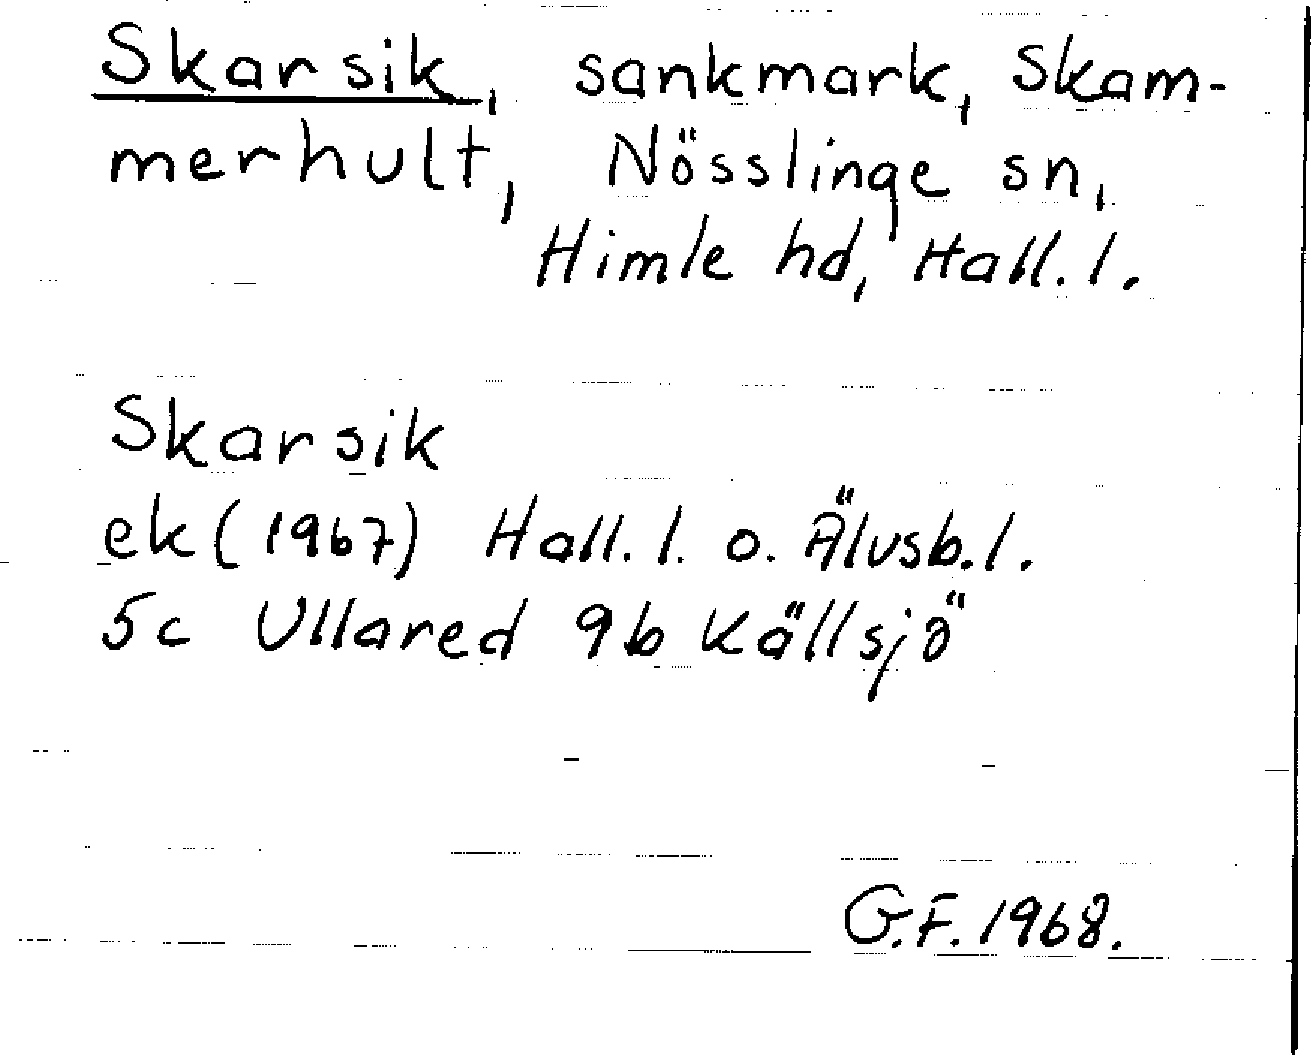 Skarsik, sankmark, Skam-
merhult, Nösslinge sn,
Himle hd, Hall. l.
Skarsik
ek (1967) Hall. l. o. Älvsb. l.
5c Ullared 9b Källsjö
G.F. 1968.